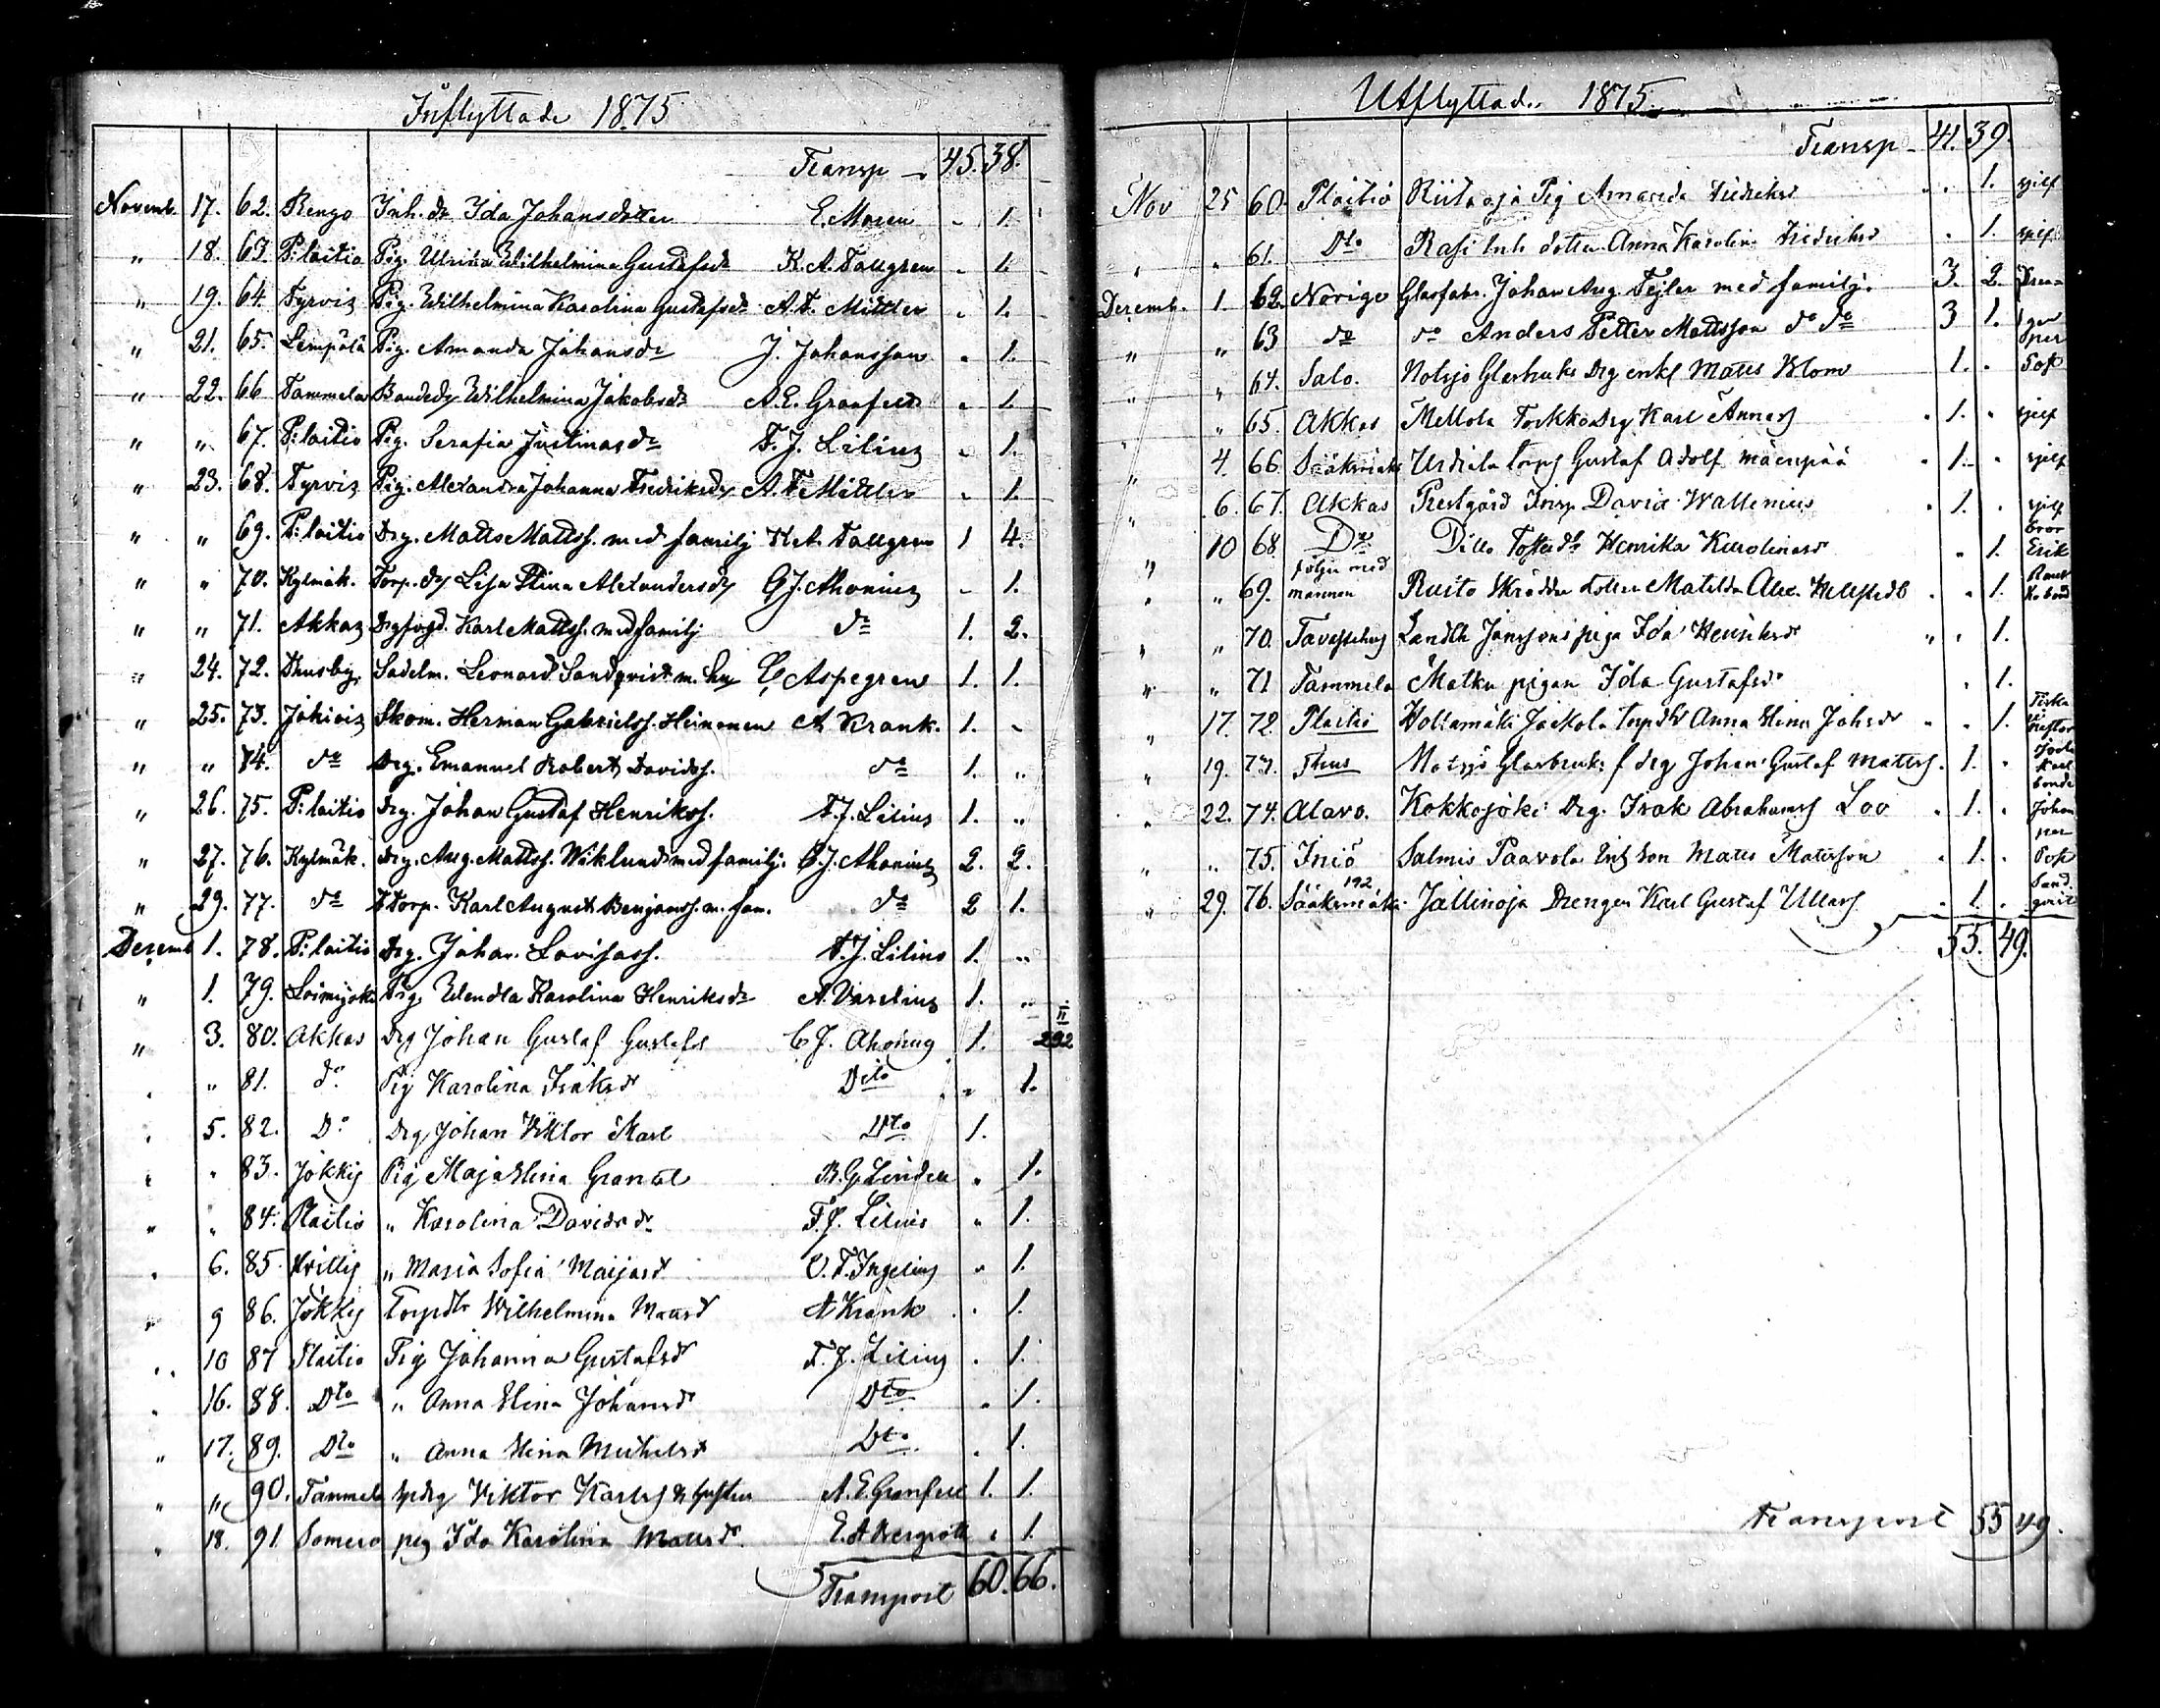 Inflyttade 1875
Transp 45. 38.
Novemb. 17. 62. Rengo Inh. dr Ida Johansdotter E. Moren " 1.
" 18. 63. P:laitio Pig. Ulrika Wilhelmina Gustafsdr K. A. Tallgren " 1.
" 19. 64. Tyrvis Pig. Wilhelmina Karolina Gustafsdr A. F. Mittler " 1.
" 21. 65. Lempälä Pig. Amanda Johansdr J. Johansson " 1.
" 22. 66. Tammela Bondedr Wilhelmina Jakobsdr A. E. Granfelt " 1.
" " 67. P:laitio Pig. Serafia Justinasdr F. J. Lilius " 1.
" 23. 68. Tyrvis Pig. Alexandra Johanna Fredriksdr A. F. Mittler " 1.
" " 69. P:laitio Drg. Matts Mattss. med familj K. A. Tallgren 1 4.
" " 70. Kylmäk. Torp. dr Lisa Stina Alexandersdr C. J. Ahonius " 1.
" " 71. Akkas Drg Karl Mattss. med familj do 1. 2.
" 24. 72. Thusby Sadelm. Leonard Sandqvist m. hu Aspegren 1. 1.
" 25. 73. Jokiois Skom. Herman Gabrielss. Heinonen A Krank. 1. "
" " 74. do Drg. Emanuel Robert Davidss. do 1. "
" 26. 75. P:laitio Drg. Johan Gustaf Henrikss. F. J. Lilius 1. "
" 27. 76. Kylmäk. Drg. Aug. Mattss. Wiklund med familj. C. J. Ahonius 2. 2.
" 29. 77. do Torp. Karl August Benjamss. m. fam. do 2 1.
Decemb 1. 78. P:laitio Drg. Johan Lovisass. F. J. Lilius 1. "
" 1. 79. Loimijoki Pig. Wendla Karolina Henriksdr A. Varelius 1. "
" 3. 80. Akkas Drg Johan Gustaf Gustafss C. J. Ahonius 1. 292
" " 81. do Pig Karolina Isaksdr Dito " 1.
" 5. 82. Do Drg Johan Viktor Karl Dto 1.
" " 83. Jokkis Pig Maja Stina B. G. Lindell " 1.
" " 84. Plaitio " Karolina Davidsdr F. J. Lilius " 1.
" 6. 85. " Maria Sofia Maijasdr O. F. Ingelius " 1.
" 9 86. Jokkis Torpdtr Wilhelmina Mattsdr A Krank " 1.
" 10 87 Plaitio Pig Johanna Gustafsdr F. J. Lilius " 1.
" 16. 88. Dto " Anna Stina Johansdr Dto " 1.
" 17. 89. Dto " Anna Stina Michelsdr Dto " 1.
" " 90. Tammela Viktor Karlss & hustru A. E. Granfelt 1. 1.
" 18. 91. Somero pig Ida Karolina Mattsdr " 1.
Transport 60. 66.
Utflyttade 1875
Transp 41. 39.
Nov 25 60. Plaitio Riitaoja Pig Amanda Fredriksd " 1. sjelf
" " 61. Dto Rasi Inh dotter Anna Karolina Fredriksd " 1. sjelf
Decemb. 1. 62. Norige Glasfabr. Johan Aug. Fejler med familj. 3. 2.
" " 63 do do Anders Petter Mattsson do do 3 1.
" " 64. Salo. Notsjö Glasbruks Drg enkl Matts Blom 1. "
" " 65. Akkas Mellola Torkko Drg Karl Annass 1. " sjelf
" 4. 66. Sääksmäki Urdiala torps Gustaf Adolf Mäenpää 1. " sjelf
" 6. 67. Akkas Prestgård Insp David Wallenius 1. " sjelf
" 10 68 Do Ditto Henrika Karolinasdr " 1. bror Erik
" " 69. följer med mannen Rusto Skräddar dotter Matilda " 1.
" " 70. Tavastehus Landth Janssons piga Ida Henriksdr " 1.
" " 71 Tammela Matku pigan Ida Gustafsdr " 1.
" 17. 72. Plaitio Anna Stina Johsdr " 1.
" 19. 73. Thus Notsjö Glasbruks f drg Johan Gustaf Mattss. 1. "
" 22. 74. Alavo. Kokkojoki Drg. Isak Abrahamss Loo 1. " Johan
" " 75. Iniö Salmis Paavola Inh son Matts Matsson 1. "
" 29. 76. Sääksmäki 192 Jallinoja Drengen Karl Gustaf Ullass 1. "
55. 49.
Transport 55 49.